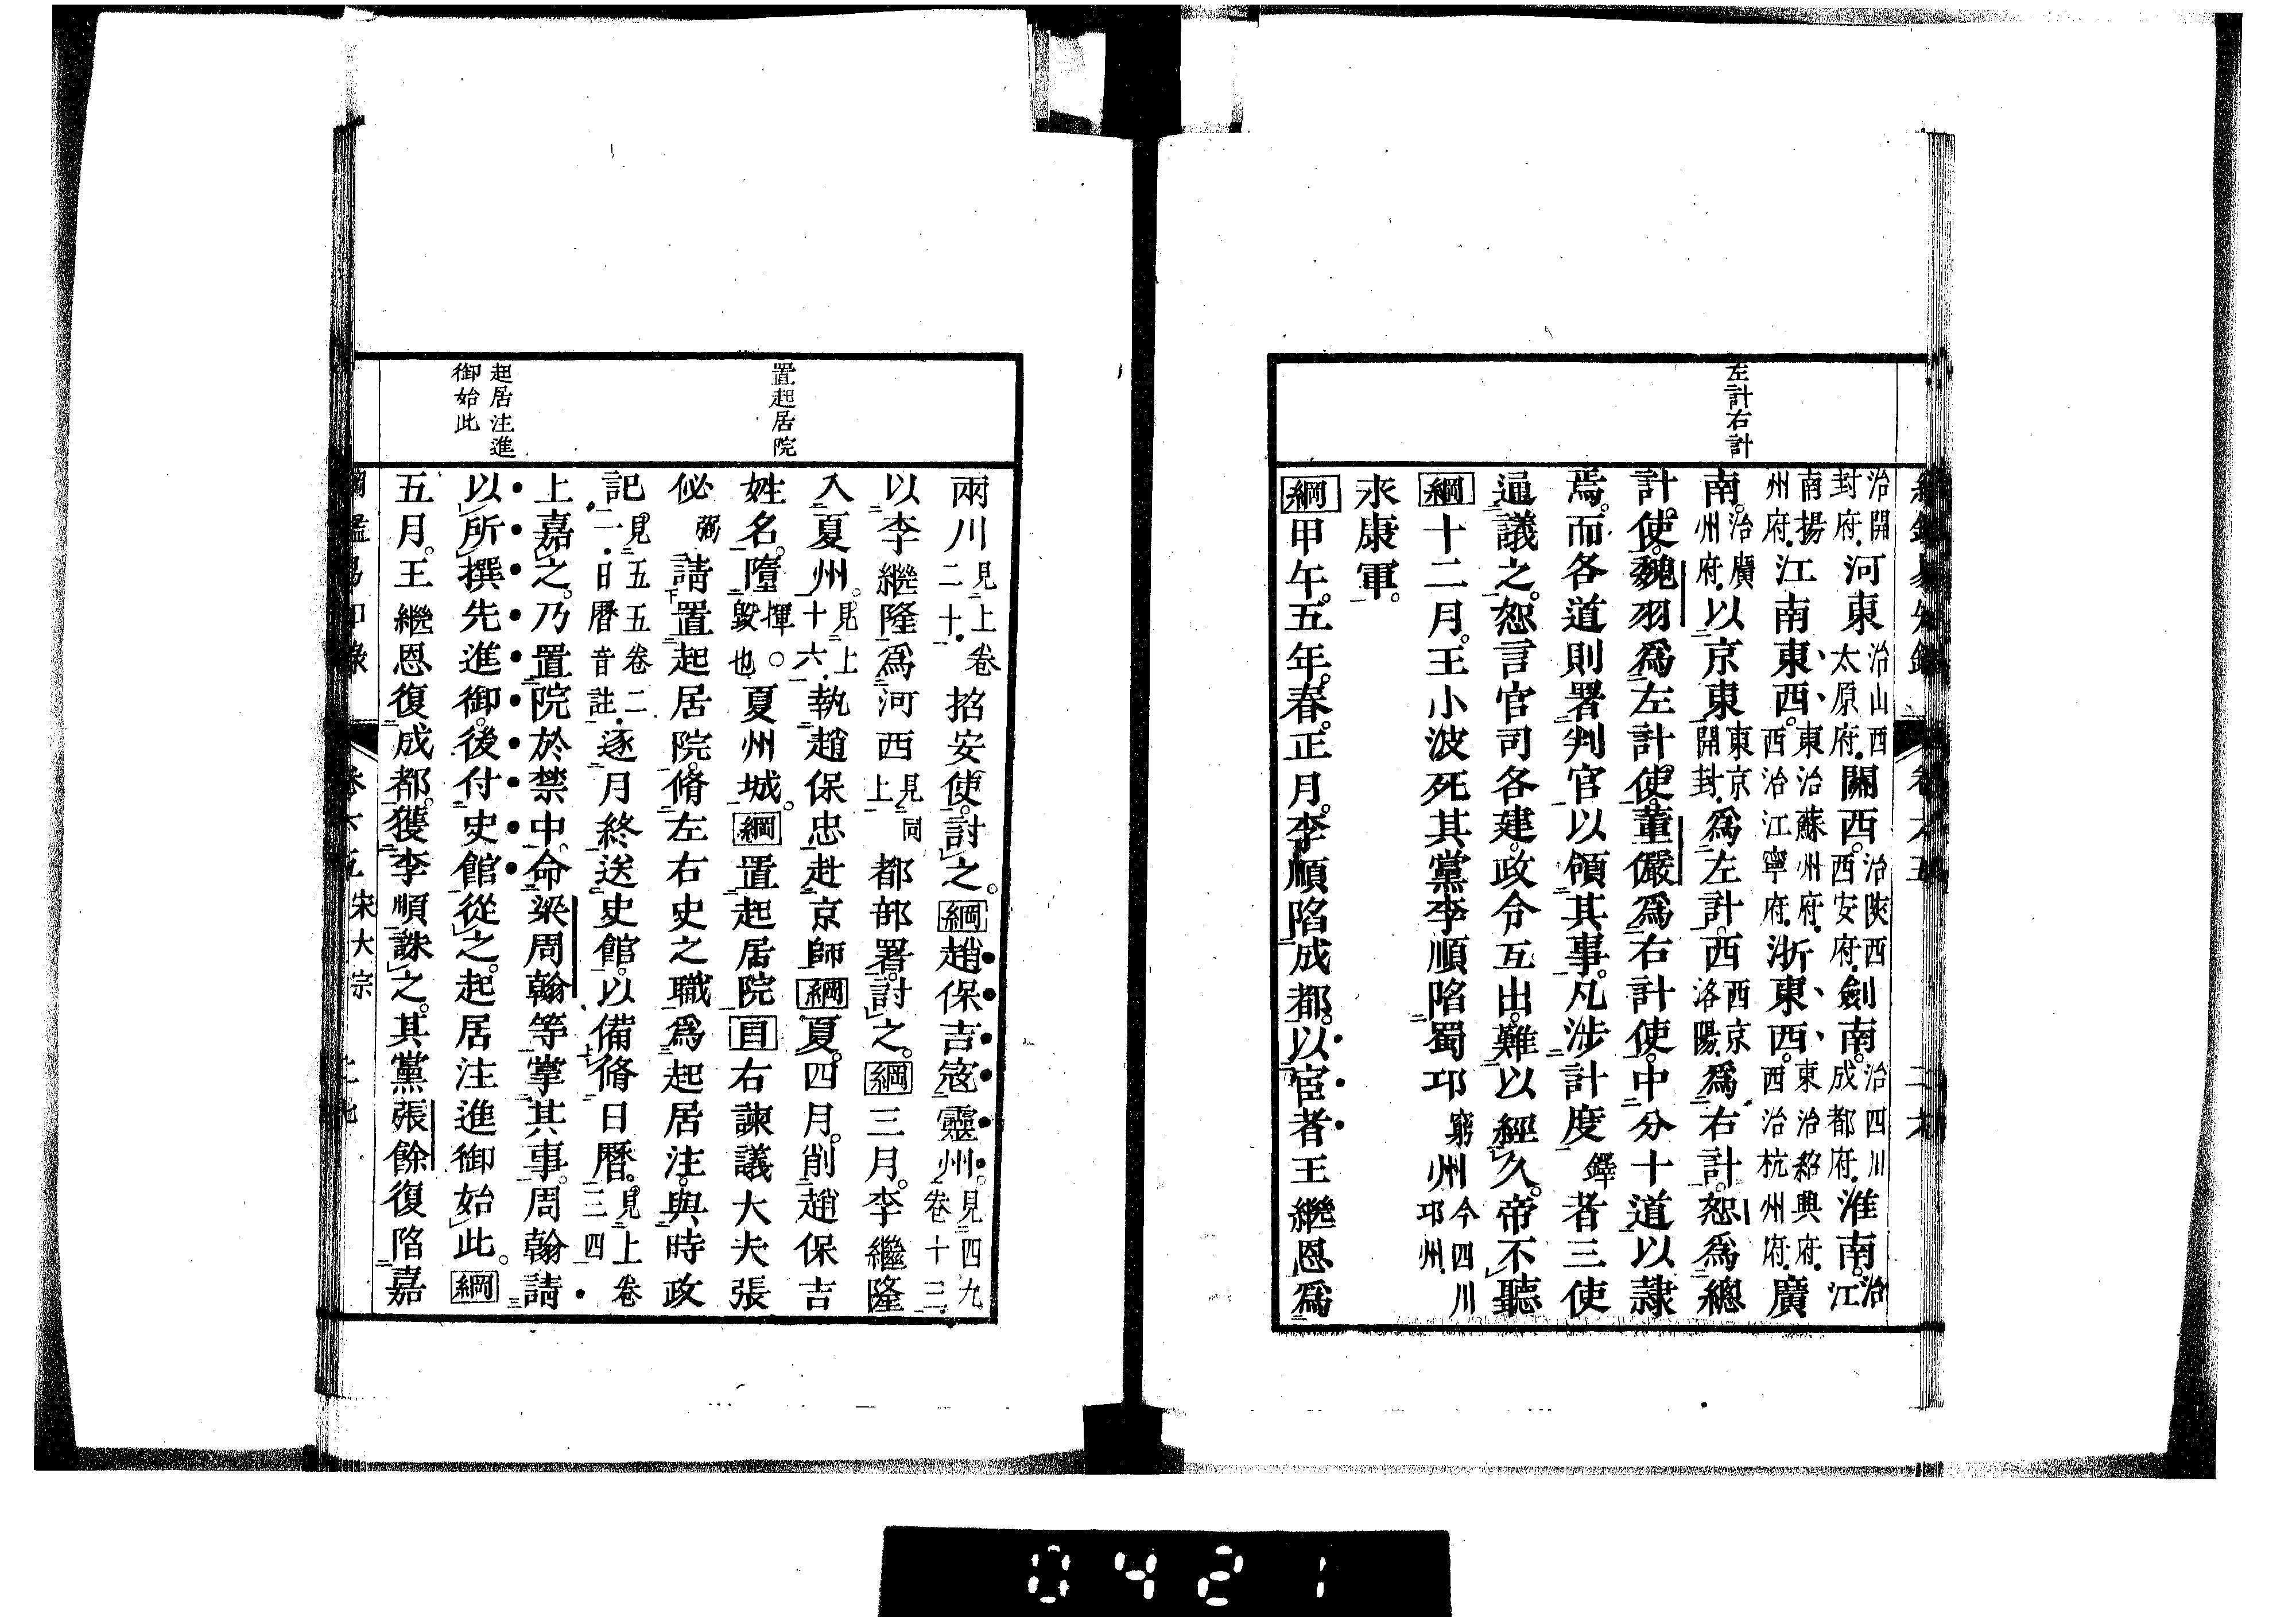 左計右計
治開封府河東治山西太原府關西治陝西西安府劍南治四川成都府淮南治江
南揚州府江南東西東治蘇州府西治江寧府浙東西東治紹興府西治杭州府廣
南治廣州府以京東東京開封爲左計西西京洛陽爲右計恕爲總
計使魏羽爲左計使董儼爲右計使中分十道以隷
焉而各道則署判官以領其事凡涉計度鐸者三使
逼議之恕言官司各建政令互出難以經久帝不聽
綱十二月王小波死其黨李順陷蜀邛窮州今四川邛州
永康軍
綱甲午五年春正月李順陷成都以宦者王繼恩爲
置起居院
起居注進
御始此
兩川見上卷二十招安使討之綱趙保吉寇靈州見四九卷十三
以李繼隆爲河西見同上都部署討之綱三月李繼隆
入夏州見上十六執趙保忠赴京師綱夏四月削趙保吉
姓名隳揮毀也夏州城綱置起居院目右諫議大夫張
佖弼請置起居院脩左右史之職爲起居注與時政
記見五五卷二一日曆音註逐月終送史館以備脩日曆見上卷三四
上嘉之乃置院於禁中命梁周翰等掌其事周翰請
以所撰先進御後付史館從之起居注進御始此綱
五月王繼恩復成都獲李順誅之其黨張餘復陷嘉
宋太宗
0421